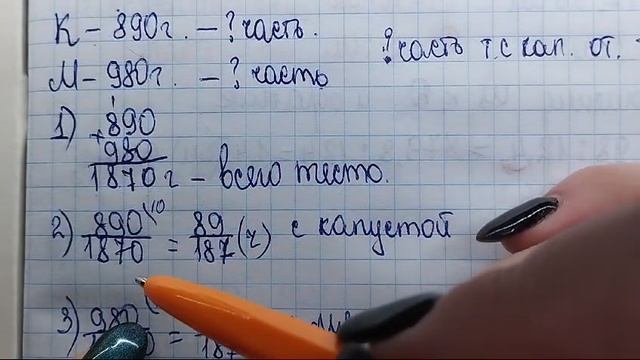 К – 890г. – ? часть.
М – 980г. – ? часть
? часть т. с кап. от.
1) +890
980
1870г – всего тесто.
2) 890/1870 \10 = 89/187 (ч) с капустой
3) 980
= 187